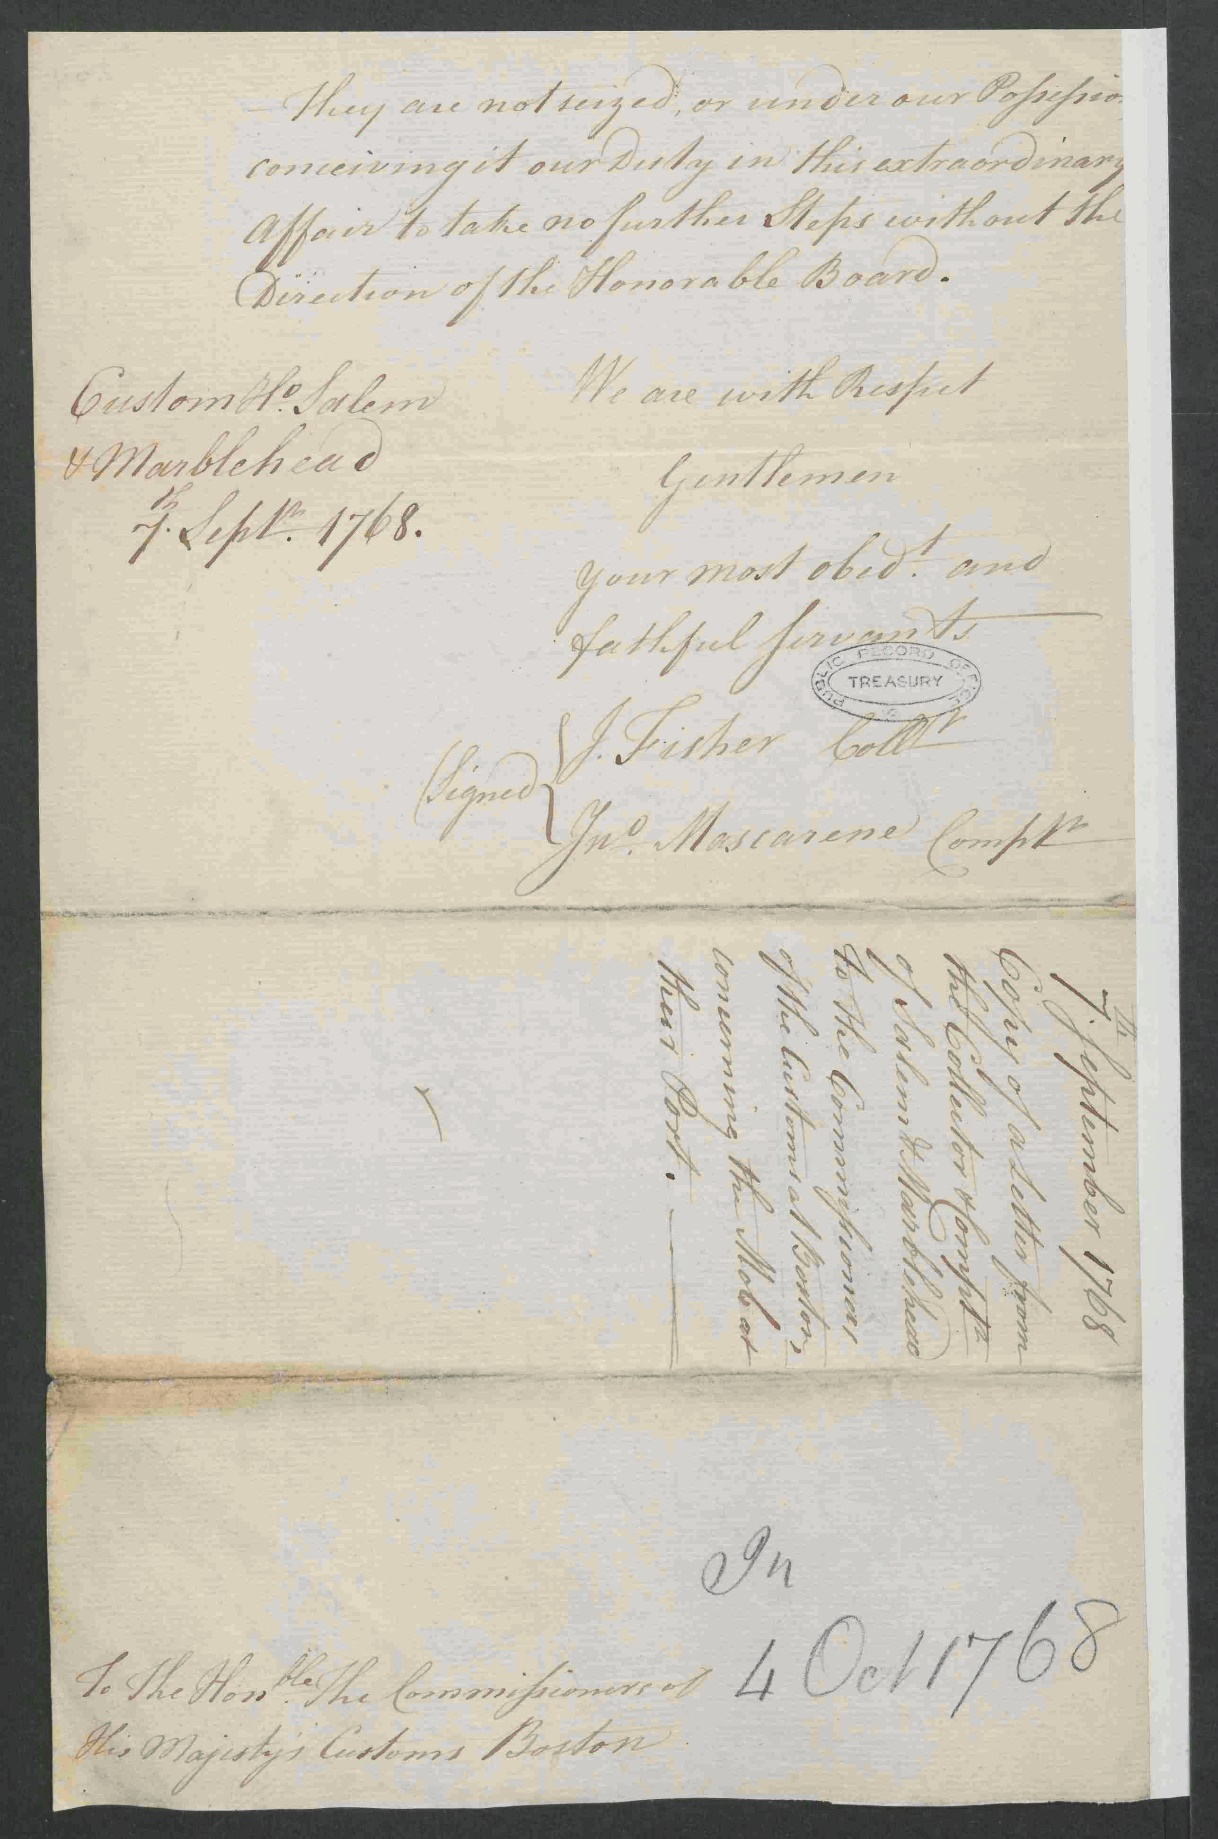 — They are not seized, or under our Possessio
conceiving it our Duty in this extraordinary
Affair to take no further Steps without the
Direction of the Honorable Board.
We are with Respect
Gentlemen
your most obedt. and
fathful Servants
Custom Ho. Salem
& Marblehead
7.th Septr. 1768.
PUBLIC RECORD OFFICE
TREASURY
(Signed
J. Fisher Collr
Jno. Mascarene Comptr
7.th September 1768
Copy of a Letter from
the Collector & Comptr
of Salem & Marblehead
to the Commissioners
of the Customs at Boston,
concerning the Mob at
their Port.
In
4 Oct 1768
To The Honble. The Commissioners of
His Majesty's Customs Boston